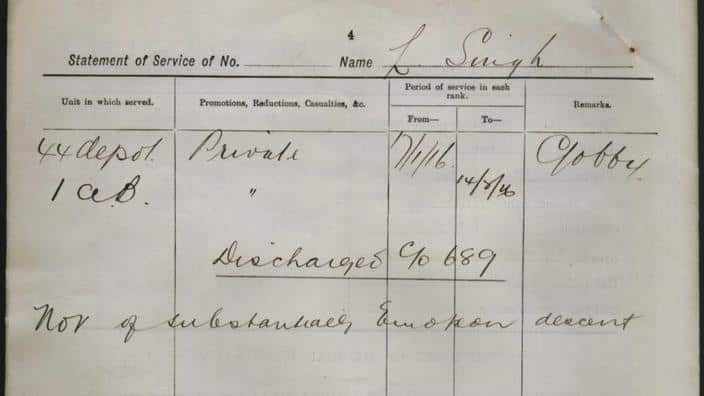 4
Statement of Service of No. Name L Singh
Unit in which served. Promotions, Reductions, Casualties, &c. Period of service in each rank. Remarks.
From— To—
44 depot. Private 7/1/16
1 a.B. "
Discharged C/o 689
Not of substantially European descent